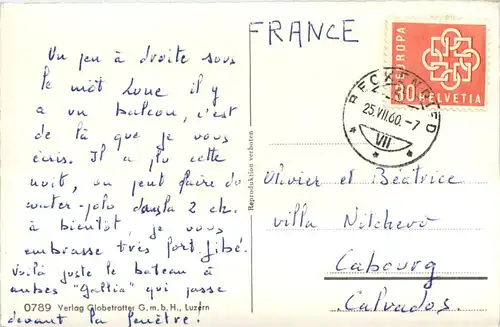 FRANCE
EUROPA
30 HELVETIA
BECKENRIED
25.VII.60.-7
VII
Un peu à droite sous
le mot Loue il y
a un balcon, c'est
de là que je vous
écris. Il a plu cette
nuit, on peut faire du
water-polo dans la 2 ch.
à bientôt, je vous
embrasse très fort. fibé.
Voilà juste le bateau à
aubes "Gallia" qui passe
devant la fenêtre!
0789 Verlag Globetrotter G.m.b.H., Luzern
Reproduktion verboten
Olivier et Béatrice
villa Nitchevo
Cabourg
Calvados.